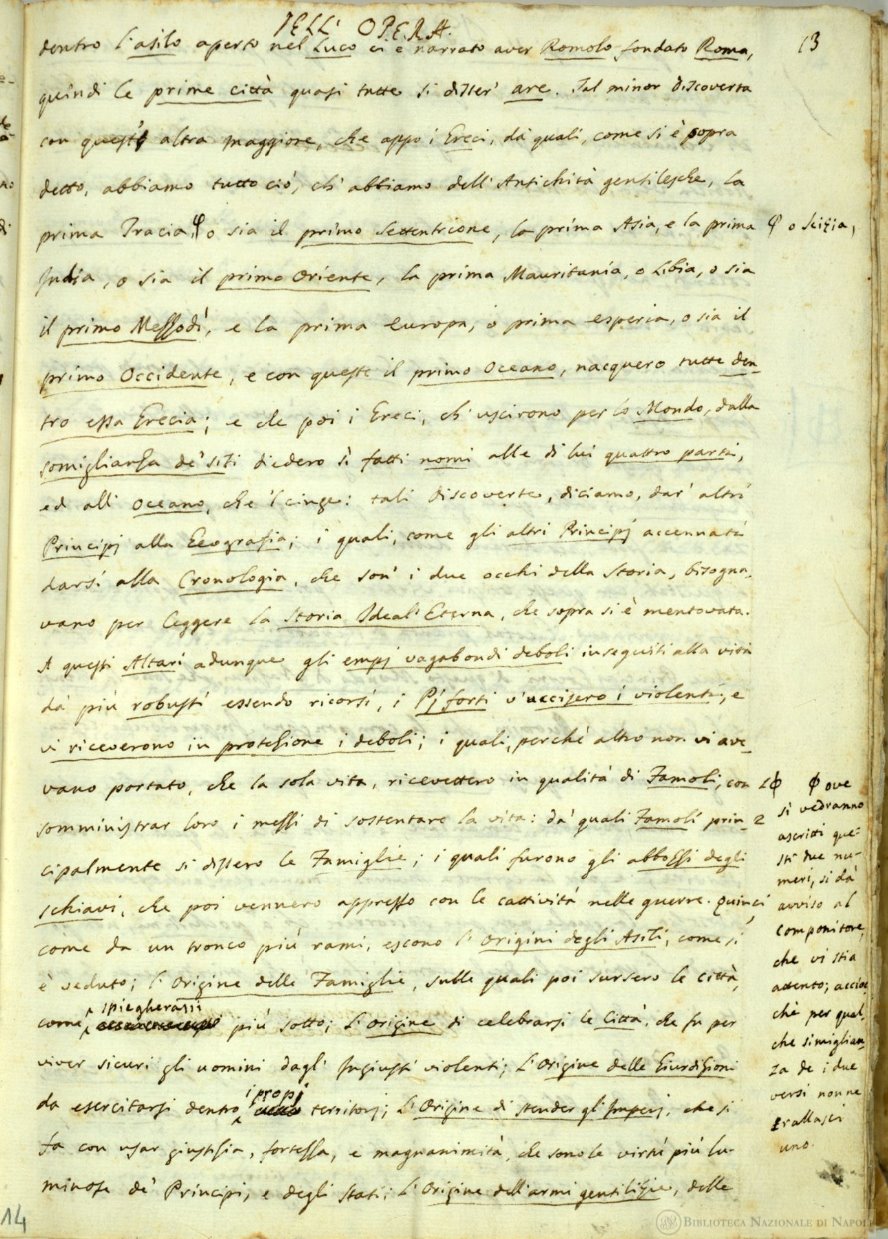 DELL' OPERA.
13
dentro l'asilo aperto nel Luco ci è narrato aver Romolo fondato Roma,
quindi le prime città quasi tutte si disser' are. Tal minor discoverta
con quest' altra maggiore, che appo i Greci, da' quali, come si è sopra
detto, abbiamo tutto ciò, ch' abbiamo dell' Antichità gentilesche, la
prima Tracia φ o sia il primo Settentrione, la prima Asia, e la prima
φ o Scizia,
India, o sia il primo Oriente, la prima Mauritania, o Libia, o sia
il primo Mezzodì, e la prima Europa, o prima esperia, o sia il
primo Occidente, e con queste il primo Oceano, nacquero tutte den-
tro essa Grecia; e che poi i Greci, ch' uscirono per lo Mondo, dalla
somiglianza de' siti diedero sì fatti nomi alle di lui quattro parti,
ed all' Oceano, che 'l cinge: tali discoverte, diciamo, dar' altri
Principj alla Geografia; i quali, come gli altri Principj accennati
darsi alla Cronologia, che son' i due occhi della Storia, bisogna,
vano per leggere la Storia Ideal' Eterna, che sopra si è mentovata.
A questi Altari adunque gli empj vagabondi deboli inseguiti alla vita
da' più robusti essendo ricorsi, i Pj forti v' uccisero i violenti, e
vi riceverono in protezione i deboli; i quali, perchè altro non vi ave-
vano portato, che la sola vita, ricevettero in qualità di Famoli, con 1 φ
somministrar loro i mezzi di sostentare la vita: da' quali Famoli prin- 2
cipalmente si dissero le Famiglie; i quali furono gli abbozzi degli
schiavi, che poi vennero appresso con le cattività nelle guerre. Quinci,
come da un tronco più rami, escono l' Origini degli Asili, come si
è veduto; l' Origine delle Famiglie, sulle quali poi sursero le città,
come spiegherassi più sotto; l' Origine di celebrarsi le Città, che fu per
viver sicuri gli uomini dagl' Ingiusti violenti; l' Origine delle Giurdizioni
da esercitarsi dentro i propj territorj; l' Origine di stender gl' Imperj, che si
fa con usar giustizia, fortezza, e magnanimità, che sono le virtù più lu-
minose de' Principi, e degli Stati; l' Origine dell' armi gentilizie, delle
φ ove
si vedranno
ascritti que-
sti due nu-
meri, si dà
avviso al
componitore,
che vi stia
attento; accioc
chè per qual,
che simiglian-
za de i due
versi non ne
trallasci
uno.
14
BIBLIOTECA NAZIONALE DI NAPOLI